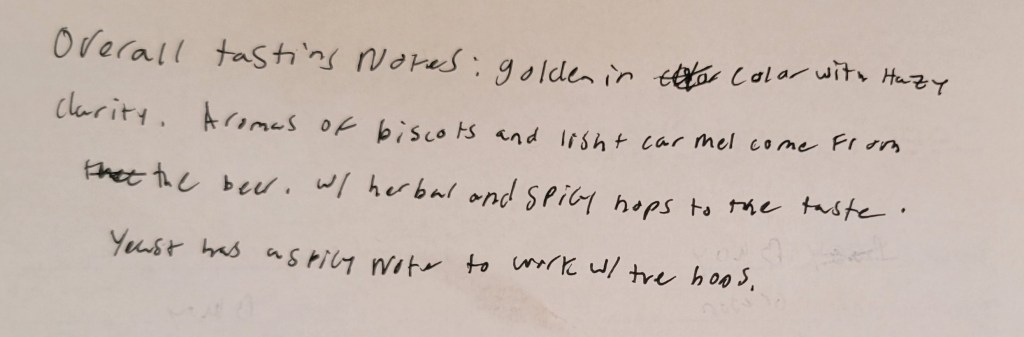 Overall tasting Notes: golden in color with Hazy
clarity. Aromas of biscots and light carmel come From
the beer. w/ herbal and spicy hops to the taste.
Yeast has a spicy Note to work w/ the hops.